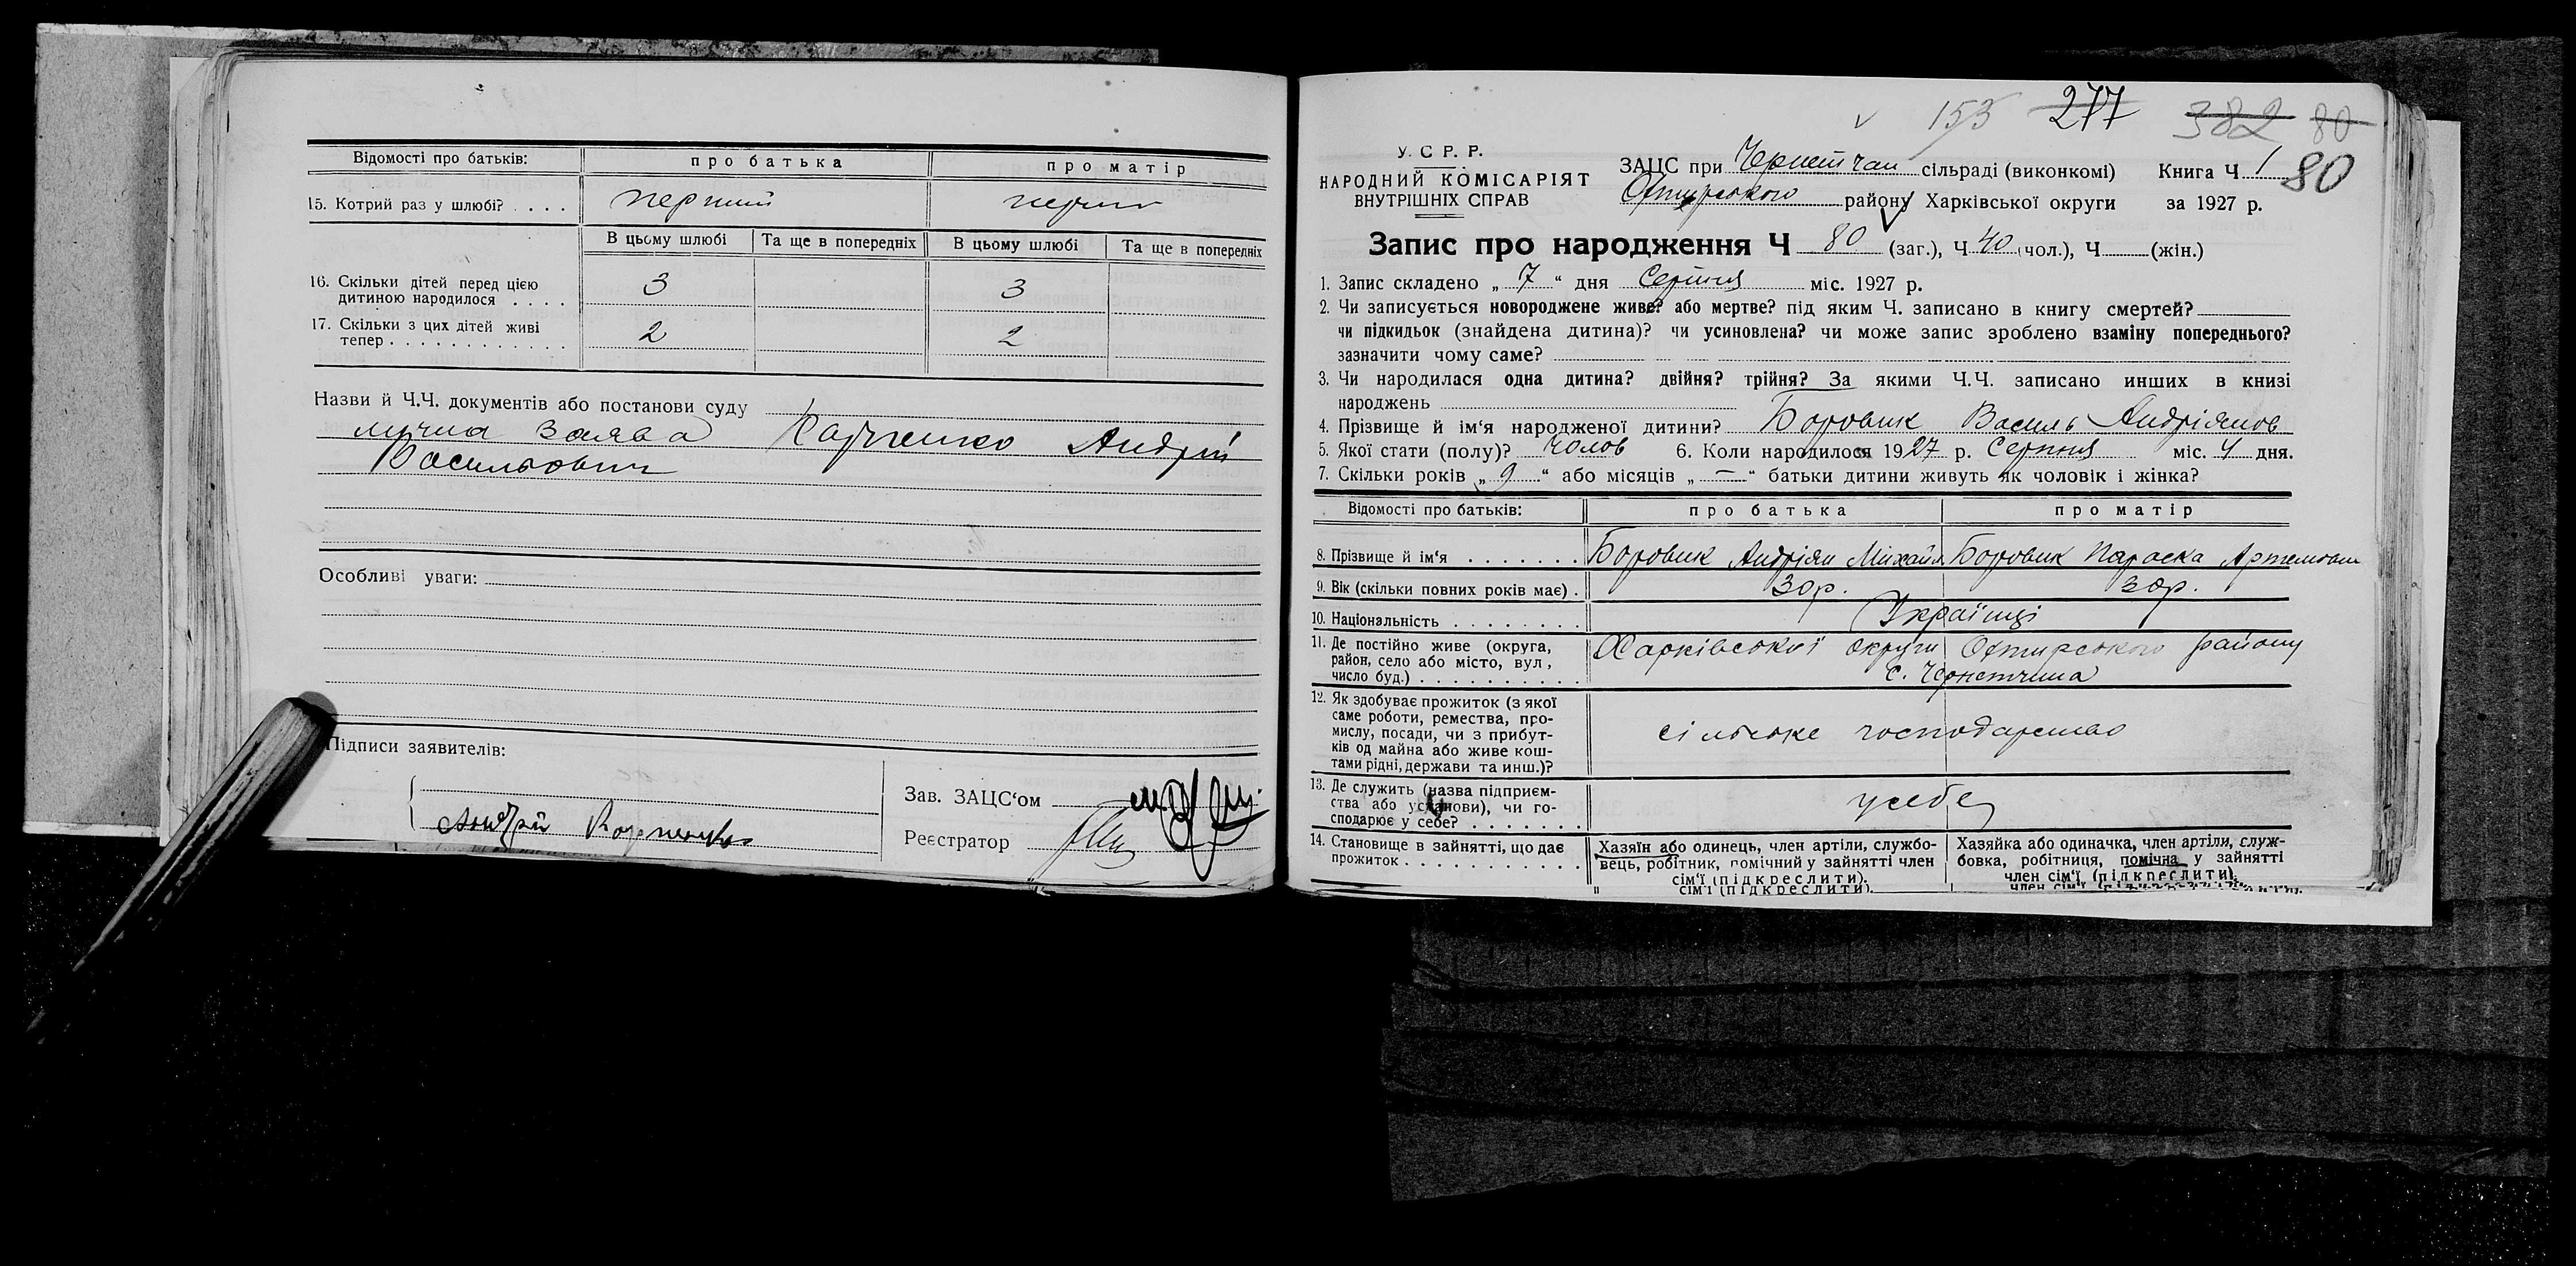 Відомості про батьків: про батька про матір
15. Котрий раз у шлюбі? . . . . перший перш
В цьому шлюбі Та ще в попередніх В цьому шлюбі Та ще в попередніх
16. Скільки дітей перед цією
дитиною народилося . . . . 3 3
17. Скільки з цих дітей живі
тепер . . . . . . . . . . . . 2 2
Назви й Ч.Ч. документів або постанови суду
заява Андрій
Васильович
Особливі уваги:
Підписи заявителів:
Зав. ЗАЦС‘ом
Андрій
Реєстратор
153 277 382 80
У. С Р. Р.
НАРОДНИЙ КОМІСАРІЯТ
ВНУТРІШНІХ СПРАВ
ЗАЦС при Чернетчан сільраді (виконкомі) Книга Ч 1 80
Охтирського району Харківської округи за 1927 р.
Запис про народження Ч 80 (заг.), Ч 40 (чол.), Ч (жін.)
1. Запис складено „ 7 “ дня Серпня міс. 1927 р.
2. Чи записується новороджене живе? або мертве? під яким Ч. записано в книгу смертей?
чи підкидьок (знайдена дитина)? чи усиновлена? чи може запис зроблено взаміну попереднього?
зазначити чому саме?
3. Чи народилася одна дитина? двійня? трійня? За якими Ч.Ч. записано инших в книзі
народжень
4. Прізвище й ім‘я народженої дитини? Боровик Василь Андріянов
5. Якої стати (полу)? чолов 6. Коли народилося 1927 р. Серпня міс. 4 дня.
7. Скільки років „ 9 “ або місяців „ — “ батьки дитини живуть як чоловік і жінка?
Відомості про батьків: про батька про матір
8. Прізвище й ім‘я . . . . . . . Боровик Андріян Михайл Боровик Параска Артемовна
9. Вік (скільки повних років має) . 30 р. 30 р.
10. Національність . . . . . . . . Українці
11. Де постійно живе (округа,
район, село або місто, вул,
число буд.) . . . . . . . . . . Харківської округи Охтирського району
с. Чернетчина
12. Як здобуває прожиток (з якої
саме роботи, ремества, про-
мислу, посади, чи з прибут-
ків од майна або живе кош-
тами рідні, держави та инш.)? сільське господарство
13. Де служить (назва підприєм-
ства або установи), чи го-
сподарює у себе? . . . . . . . у себе
14. Становище в зайнятті, що дає
прожиток . . . . . . . . . . .
Хазяїн або одинець, член артіли, службо-
вець, робітник, помічний у зайнятті член
сім‘ї (підкреслити).
Хазяйка або одиначка, член артіли, служ-
бовка, робітниця, помічна у зайнятті
член сім‘ї (підкреслити).
сім‘ї (підкреслити).